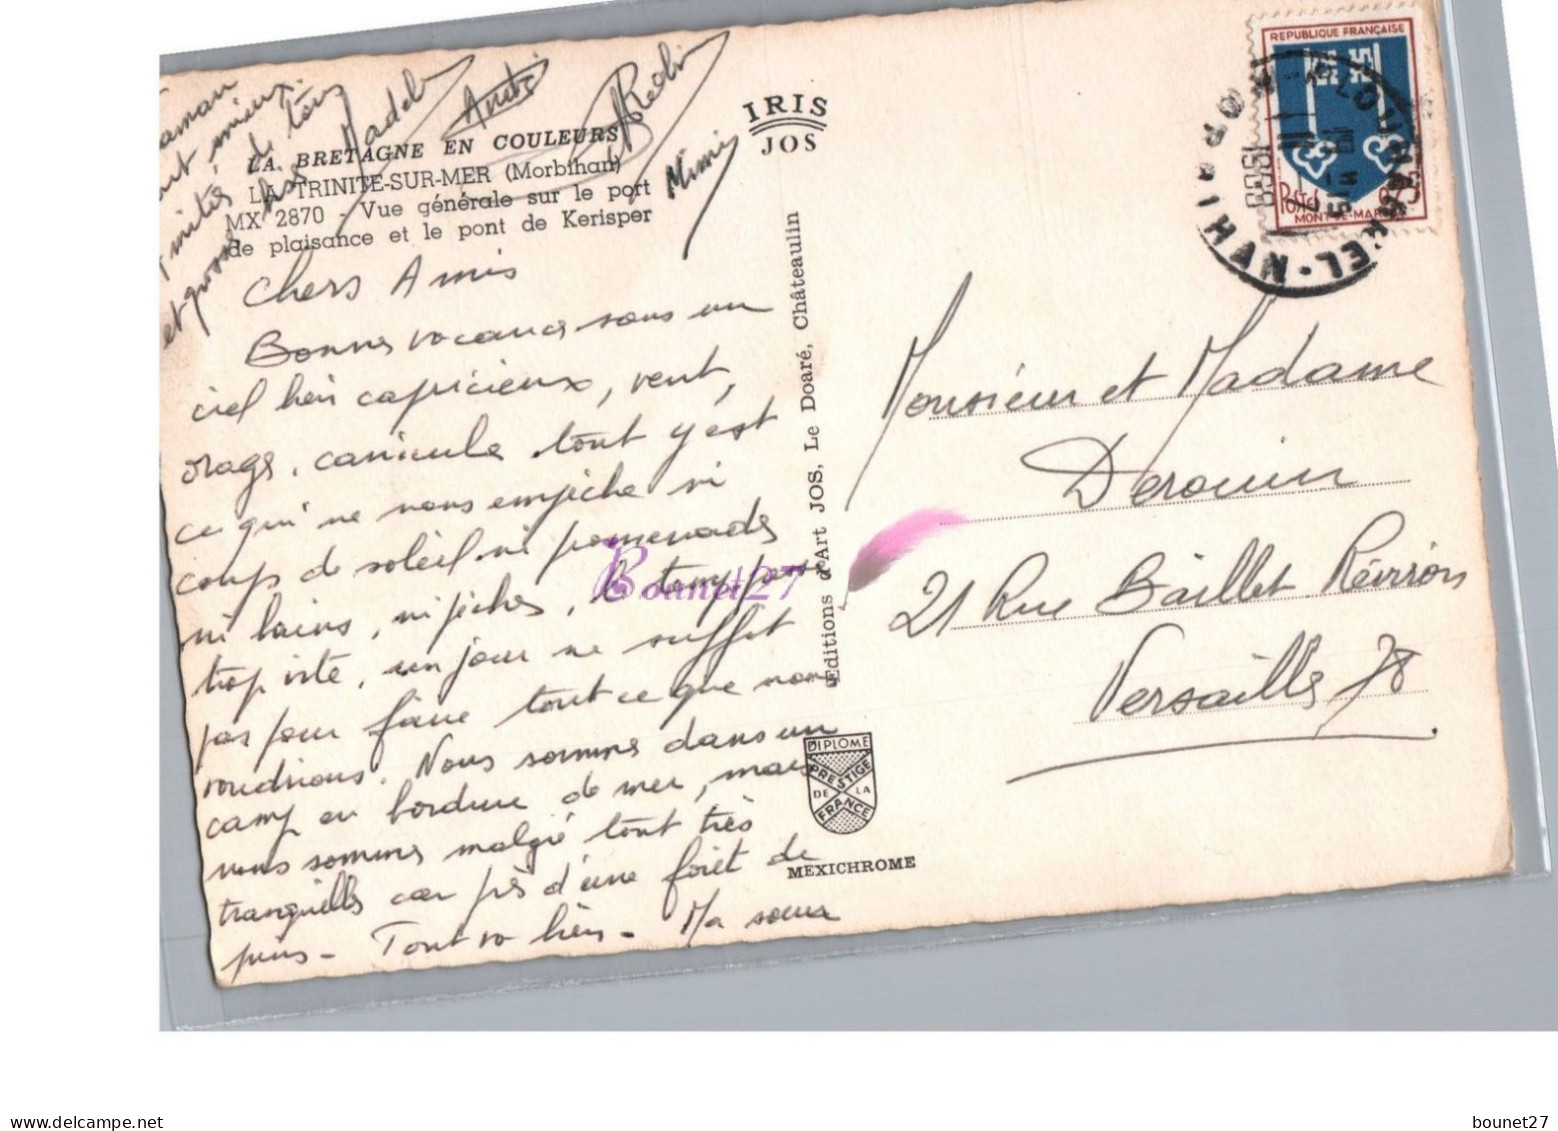 LA BRETAGNE EN COULEURS
LA TRINITE-SUR-MER (Morbihan)
MX 2870 - Vue générale sur le port
de plaisance et le pont de Kerisper
IRIS
JOS
Mimi
Chers Amis
Bonnes vacances sous un
ciel bien capricieux, vent,
orage, canicule tout y est
ce qui ne nous empêche ni
coups de soleil ni promenades
ni bains, ni pêches, le temps passe
trop vite, un jour ne suffit
pas pour faire tout ce que nous
voudrions. Nous sommes dans un
camp en bordure de mer, mais
nous sommes malgré tout très
tranquilles car près d'une forêt de
pins - Tout va bien - Ma soeur
maman
et grosses bises
Editions d'Art JOS, Le Doaré, Châteaulin
DIPLOME
PRESTIGE
DE LA
FRANCE
MEXICHROME
REPUBLIQUE FRANÇAISE
MONT-DE-MARSAN
Monsieur et Madame
Derouin
21 Rue Baillet Réviron
Versailles 78
Bounet27
delcampe.net
bounet27